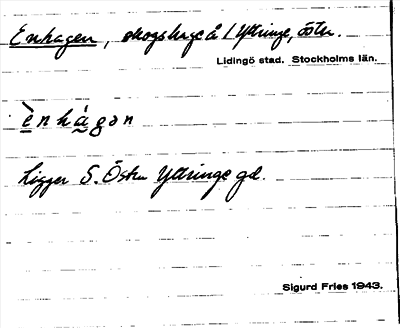 Enhagen, skogshage å / Yttringe, östr.
Lidingö stad. Stockholms län.
ènhàgən
Ligger S. Östra Yttringe gd.
Sigurd Fries 1943.